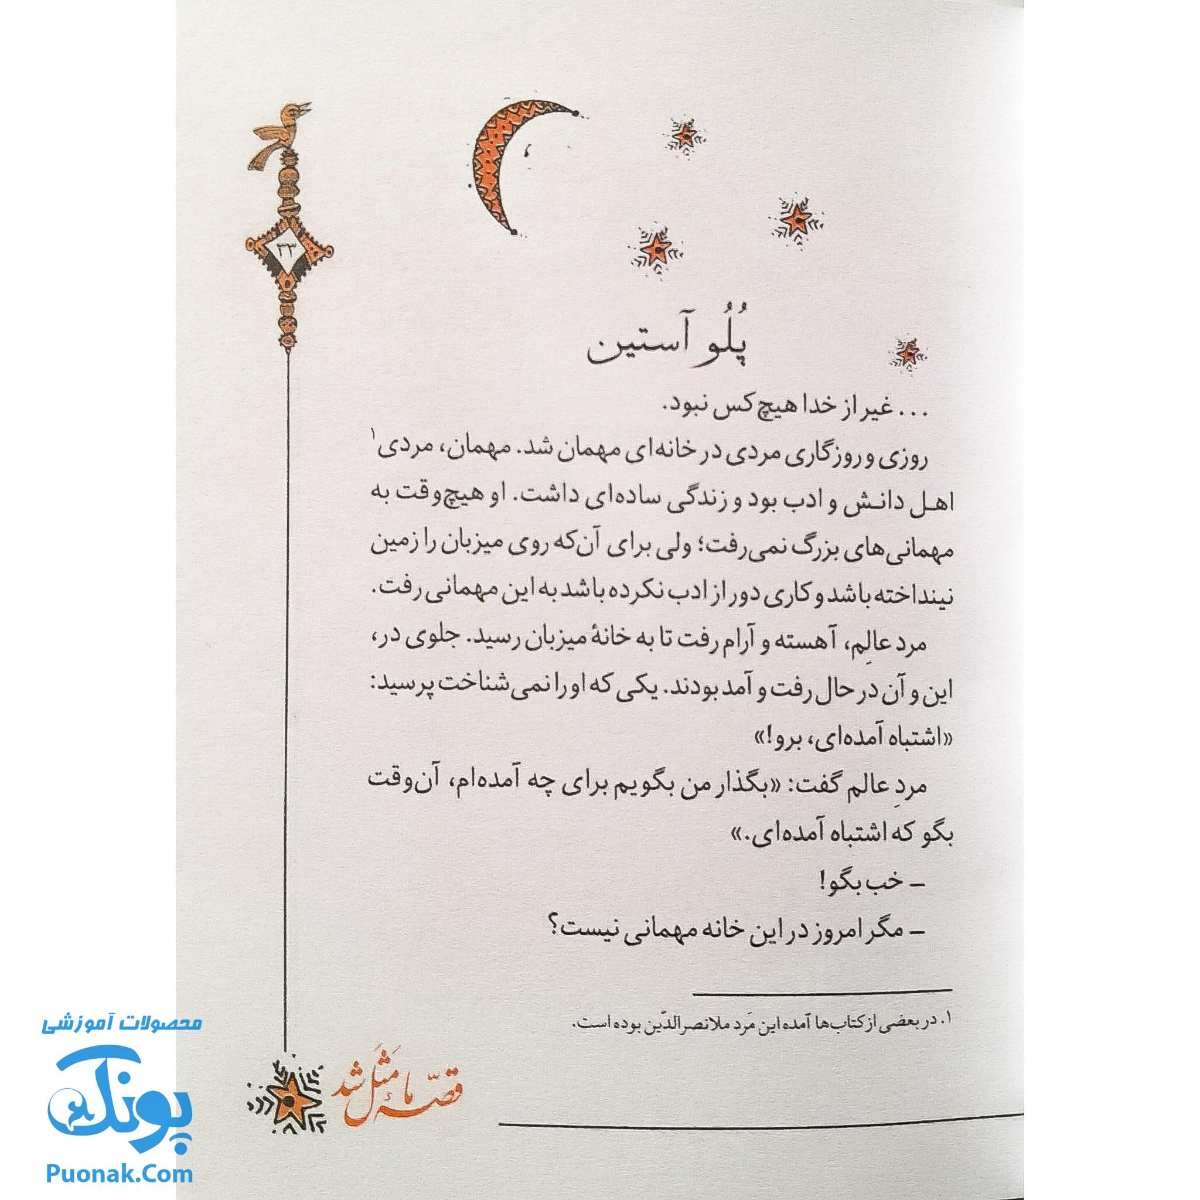 ۳۳
پُلُو آستین
... غیر از خدا هیچ‌کس نبود.
روزی و روزگاری مردی در خانه‌ای مهمان شد. مهمان، مردی۱
اهل دانش و ادب بود و زندگی ساده‌ای داشت. او هیچ‌وقت به
مهمانی‌های بزرگ نمی‌رفت؛ ولی برای آن‌که روی میزبان را زمین
نینداخته باشد و کاری دور از ادب نکرده باشد به این مهمانی رفت.
مرد عالِم، آهسته و آرام رفت تا به خانهٔ میزبان رسید. جلوی در،
این و آن در حال رفت و آمد بودند. یکی که او را نمی‌شناخت پرسید:
«اشتباه آمده‌ای، برو!»
مردِ عالم گفت: «بگذار من بگویم برای چه آمده‌ام، آن‌وقت
بگو که اشتباه آمده‌ای.»
ـ خب بگو!
ـ مگر امروز در این خانه مهمانی نیست؟
۱. در بعضی از کتاب‌ها آمده این مَرد ملانصرالدّین بوده است.
قصّه ما مَثَل شد
محصولات آموزشی
پونک
Puonak.Com